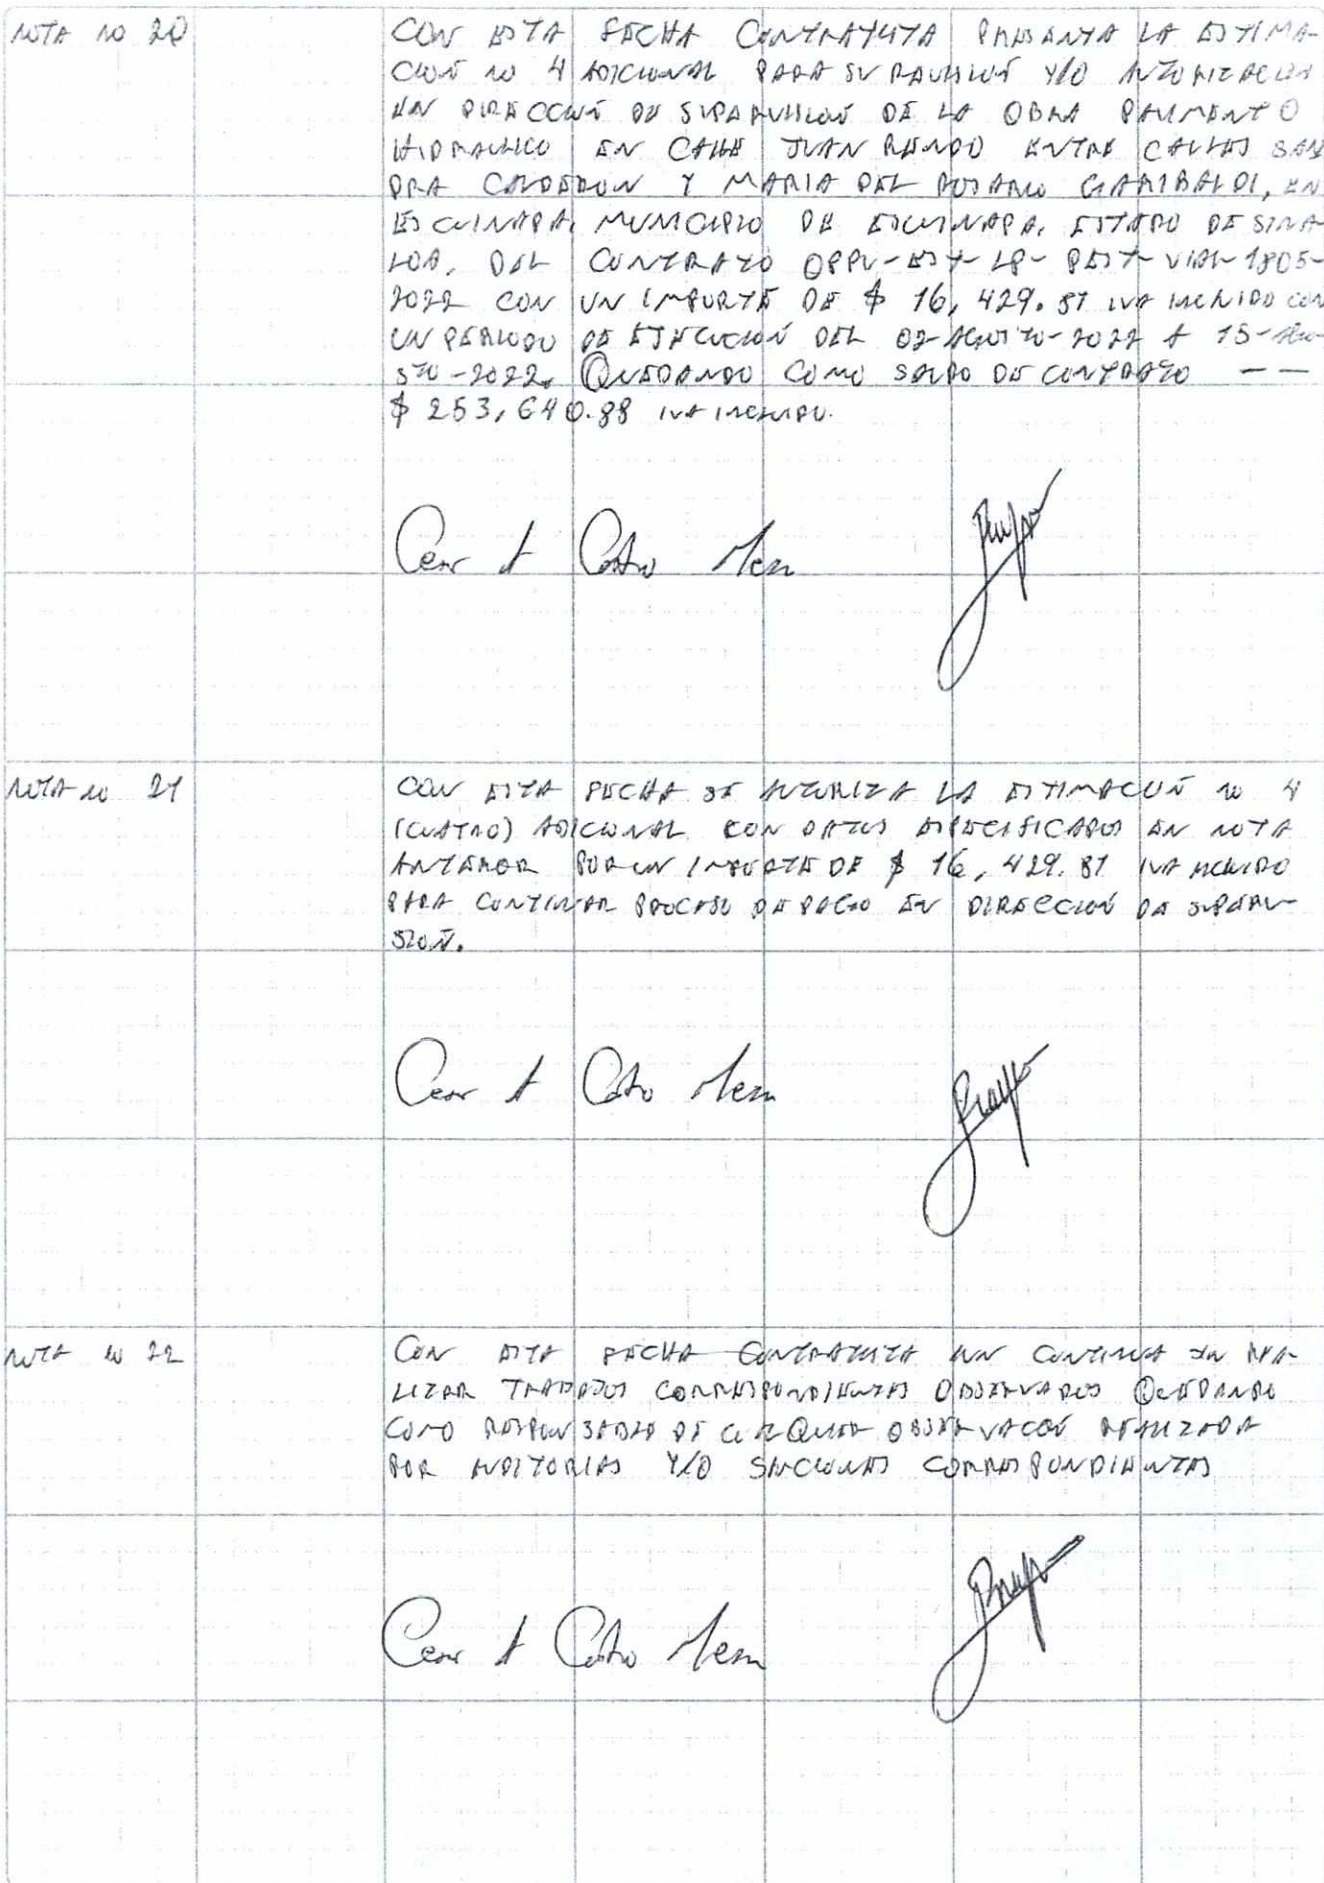 NOTA NO 20
CON ESTA FECHA CONTRATISTA PRESENTA LA ESTIMA-
CION NO 4 ADICIONAL PARA SU REVISIÓN Y/O AUTORIZACION
EN DIRECCIÓN DE SUPERVISIÓN DE LA OBRA PAVIMENTO
HIDRAULICO EN CALLE JUAN RENDO ENTRE CALLES SAN
DRA CALDERON Y MARIA DEL ROSARIO GARIBALDI, EN
ESCUINAPA, MUNICIPIO DE ESCUINAPA, ESTADO DE SINA-
LOA, DEL CONTRATO OPPU-EST-LP-PEST-VIAL-1805-
2022 CON UN IMPORTE DE $ 16,429.81 IVA INCLUIDO CON
UN PERIODO DE EJECUCIÓN DEL 02-AGOSTO-2022 A 15-AGO-
STO-2022. QUEDANDO COMO SALDO DE CONTRATO — —
$ 253,640.88 IVA INCLUIDO.
Cesar A Castro Mesa
NOTA NO 21
CON ESTA FECHA SE AUTORIZA LA ESTIMACIÓN NO 4
(CUATRO) ADICIONAL CON DATOS ESPECIFICADOS EN NOTA
ANTERIOR POR UN IMPORTE DE $ 16,429.81 IVA INCLUIDO
PARA CONTINUAR PROCESO DE PAGO EN DIRECCIÓN DE SUPERVI-
SIÓN.
Cesar A Castro Mesa
NOTA NO 22
CON ESTA FECHA CONTRATISTA CONTINUA REA-
LIZAR TRABAJOS CORRESPONDIENTES OBSERVADOS QUEDANDO
COMO RESPONSABLE DE CUALQUIER OBSERVACIÓN REALIZADA
POR AUDITORIAS Y/O SANCIONES CORRESPONDIENTES
Cesar A Castro Mesa